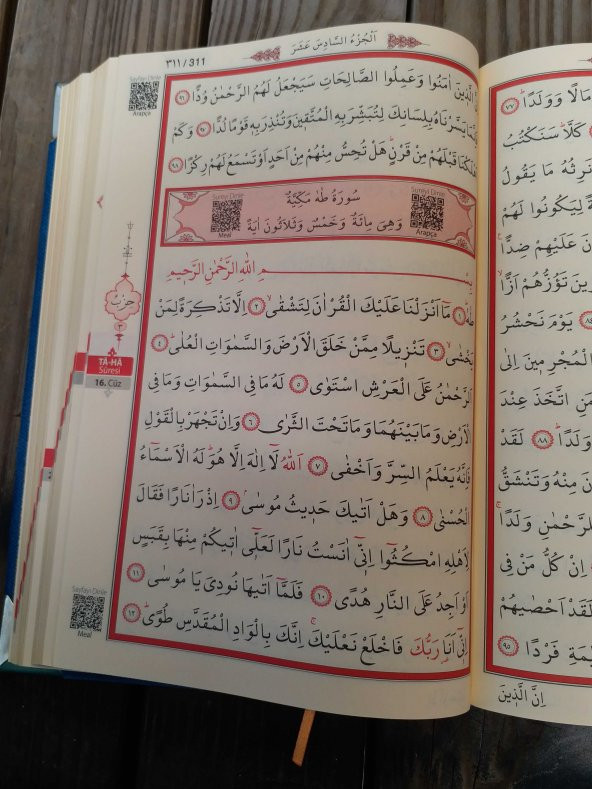 مَالًا وَوَلَدًاۜ ﴿٧٧﴾
كَلَّاۜ سَنَكْتُبُ
نَرِثُهُ مَا يَقُولُ
لِيَكُونُوا لَهُمْ
عَلَيْهِمْ ضِدًّا
تَؤُزُّهُمْ اَزًّا
يَوْمَ نَحْشُرُ
الْمُجْرِمِينَ اِلٰى
مَنِ اتَّخَذَ عِنْدَ
وَلَدًاۜ ﴿٨٨﴾ لَقَدْ
مِنْهُ وَتَنْشَقُّ
لِلرَّحْمٰنِ وَلَدًا
اِنْ كُلُّ مَنْ فِى
لَقَدْ اَحْصٰيهُمْ
فَرْدًا ﴿٩٥﴾
اِنَّ الَّذِينَ
اَلْجُزْءُ السَّادِسَ عَشَرَ
٣١١ / 311
Sayfayı Dinle
Arapça
الَّذِينَ اٰمَنُوا وَعَمِلُوا الصَّالِحَاتِ سَيَجْعَلُ لَهُمُ الرَّحْمٰنُ وُدًّا ﴿٩٦﴾
يَسَّرْنَاهُ بِلِسَانِكَ لِتُبَشِّرَ بِهِ الْمُتَّقِينَ وَتُنْذِرَ بِهِ قَوْمًا لُدًّا ﴿٩٧﴾ وَكَمْ
اَهْلَكْنَا قَبْلَهُمْ مِنْ قَرْنٍۜ هَلْ تُحِسُّ مِنْهُمْ مِنْ اَحَدٍ اَوْ تَسْمَعُ لَهُمْ رِكْزًا ﴿٩٨﴾
Sureyi Dinle
Arapça
سُورَةُ طٰهٰ مَكِّيَّةٌ
وَهِىَ مِائَةٌ وَخَمْسٌ وَثَلَاثُونَ اٰيَةً
Sureyi Dinle
Meal
بِسْمِ اللّٰهِ الرَّحْمٰنِ الرَّحِيمِ
طٰهٰۜ ﴿١﴾ مَٓا اَنْزَلْنَا عَلَيْكَ الْقُرْاٰنَ لِتَشْقٰىۙ ﴿٢﴾ اِلَّا تَذْكِرَةً لِمَنْ
يَخْشٰىۙ ﴿٣﴾ تَنْزِيلًا مِمَّنْ خَلَقَ الْاَرْضَ وَالسَّمٰوَاتِ الْعُلٰىۜ ﴿٤﴾
اَلرَّحْمٰنُ عَلَى الْعَرْشِ اسْتَوٰى ﴿٥﴾ لَهُ مَا فِى السَّمٰوَاتِ وَمَا فِى
الْاَرْضِ وَمَا بَيْنَهُمَا وَمَا تَحْتَ الثَّرٰى ﴿٦﴾ وَاِنْ تَجْهَرْ بِالْقَوْلِ
فَاِنَّهُ يَعْلَمُ السِّرَّ وَاَخْفٰى ﴿٧﴾ اَللّٰهُ لَٓا اِلٰهَ اِلَّا هُوَۜ لَهُ الْاَسْمَٓاءُ
الْحُسْنٰى ﴿٨﴾ وَهَلْ اَتٰيكَ حَدِيثُ مُوسٰىۢ ﴿٩﴾ اِذْ رَاٰ نَارًا فَقَالَ
لِاَهْلِهِ امْكُثُٓوا اِنّٓى اٰنَسْتُ نَارًا لَعَلّٓى اٰتِيكُمْ مِنْهَا بِقَبَسٍ
اَوْ اَجِدُ عَلَى النَّارِ هُدًى ﴿١٠﴾ فَلَمَّٓا اَتٰيهَا نُودِىَ يَا مُوسٰى ﴿١١﴾
اِنّٓى اَنَا رَبُّكَ فَاخْلَعْ نَعْلَيْكَۚ اِنَّكَ بِالْوَادِ الْمُقَدَّسِ طُوًىۜ ﴿١٢﴾
حزب
٣
TÂ-HÂ
Sûresi
16. Cüz
Sayfayı Dinle
Meal